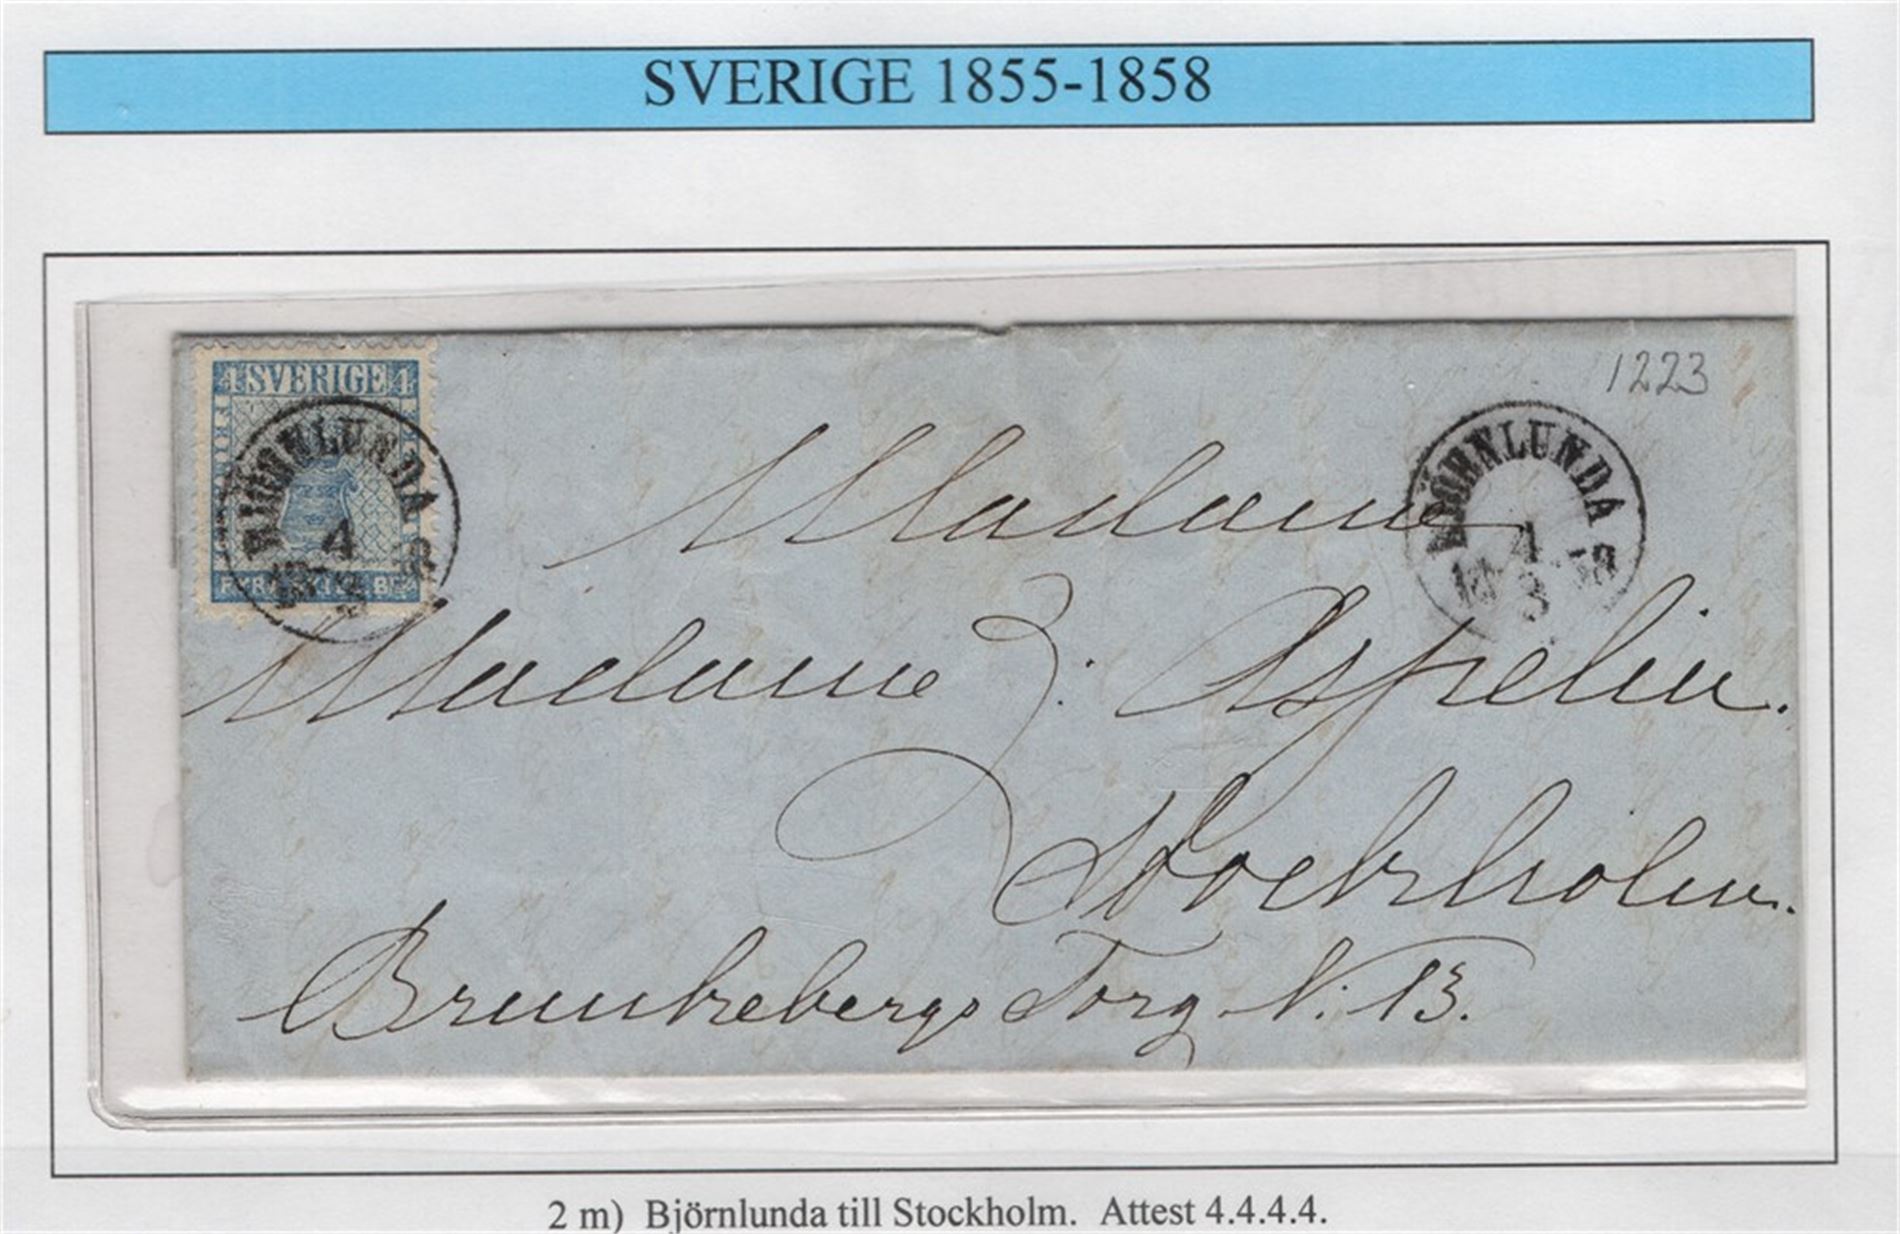 SVERIGE 1855-1858
4 SVERIGE 4
BJÖRNLUNDA
4
3
1223
BJÖRNLUNDA
4
3
Madame
Madame J: Aspelin.
Stockholm.
Brunkebergs Torg N: 13.
2 m) Björnlunda till Stockholm. Attest 4.4.4.4.